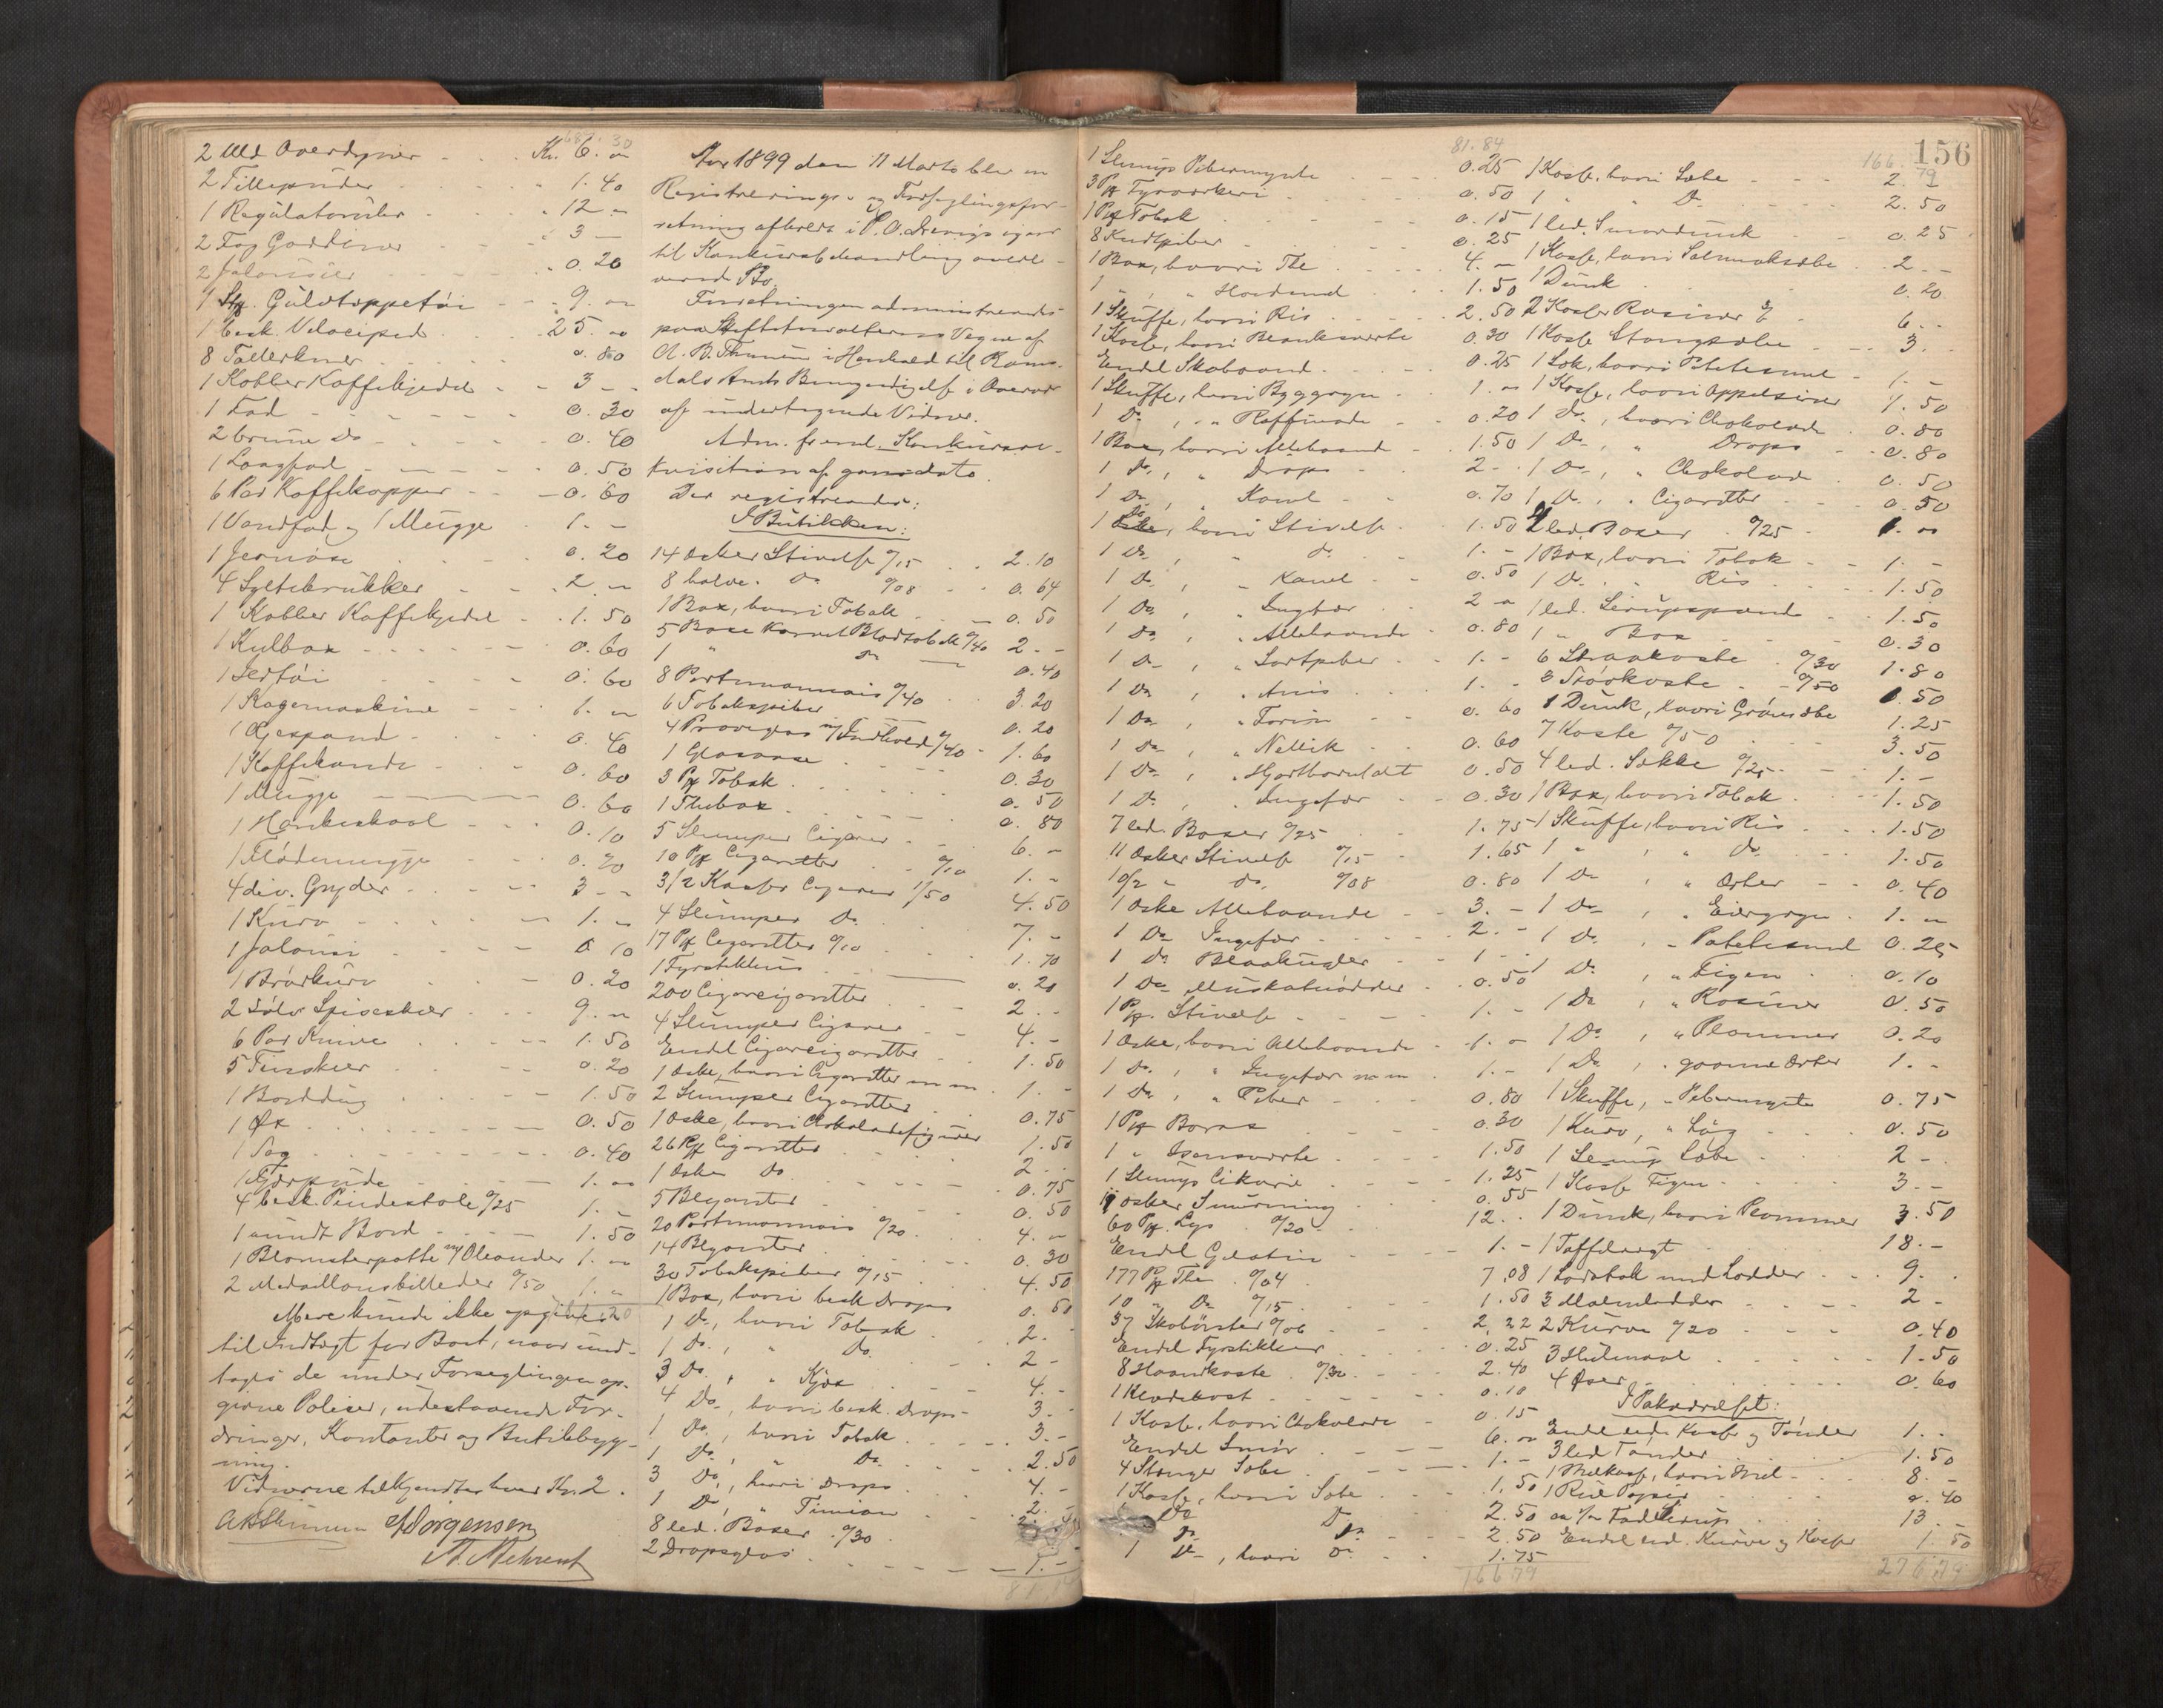 2 Uld Overdyner Kr. 6. "
2 Tillepuder " 1.40
1 Regulatoruhr " 12 "
2 Fag Gardiner " 3 —
2 Jalousier " 0.20
1 Stk. Gulvteppetøi 9. "
1 besk. Velociped 25. "
8 Tallerkner 0.80
1 Kobber Kaffekjedel 3 —
1 Fad 0.30
2 brune Do 0.40
1 Langpand 0.50
6 Par Kaffekopper 0.60
1 Vandfad og 1 Mugge 1. —
1 0.20
4 Syltekrukker 2 "
1 Kobber Kaffekjedel 1.50
1 Kulbox 0.60
1 0.60
1 Kagemaskine 1. "
1 0.40
1 Kaffekande 0.60
1 Mugge 0.60
1 0.10
1 Flødemugge 0.20
4 div. Gryder 3 —
1 Kurv 1. —
1 Jalousi 0 10
1 Brødkurv 0.20
2 Sølv Spiseskeer 9. "
6 Par Knive 1.50
5 Tinskeer 0.20
1 Borddug 1.50
1 Øx 0.50
1 Sag 0.40
1 1. "
4 besk. Pindestole 0/25 1. —
1 rundt Bord 1.50
1 Blomsterpotte m/ Oleander 1. "
2 Medaillonsbilleder 0/50 1. "
Mere kunde ikke opgives
til Indtægt for Boet, naar und-
tages de under Forseglingen op-
givne Poliser, udestaaende For-
dringer, Kontanter og Butikbyg-
ning.
Vidnerne tilkjendtes hver Kr. 2.
Jørgensen
A. Mehrent
Aar 1899 den 11 Marts blev en
Registrerings- og Forseglingsfor-
retning afholdt i P. O. 
til Konkursbehandling overle-
verede Bo.
Forretningen administreredes
paa Skifteforvalterens Vegne af
A. B. i Henhold til Roms-
dals Amts Bemyndigelse i Overvær
af undertegnede Vidner.
Adm. freml. Konkursre-
kvisition af gaarsdato.
Der registreredes:
I Butikken:
14 Æsker Stivelse 0/15 2.10
8 halve Do 0/08 0.64
1 Box, hvori Tobak 0.50
5 Boxe Karvet Bladtobak 0/40 2. —
1 " Do 0.40
8 Portemonnais 0/40 3.20
6 Tobakspiber 0.20
4 Prøveglas m/ Indhold 0/40 1.60
1 Glasvase 0.30
3 Pk Tobak 0.50
1 Thebox 0.80
5 Slumper Cigarer 6. —
10 Pk Cigaretter 0/10 1. "
3/2 Kasser Cigarer 1/50 4.50
4 Slumper Do 7. —
17 Pk Cigaretter 0/10 1.70
1 Fyrstikhus 0.20
200 Cigarcigaretter 2. —
4 Slumper Cigarer 4. —
Endel Cigarcigaretter 1.50
1 Æske, hvori Cigaretter m m 1. —
2 Slumper Cigaretter 0.75
1 Æske, hvori Chokoladefigurer 1.50
26 Pk Cigaretter 2. —
1 Æske Do 0.75
5 Blyanter 0.50
20 Portmonnais 0/20 4. "
14 Blyanter 0.30
30 Tobakspiber 0/15 4.50
1 Box, hvori besk Drops 0.50
1 Do, hvori Tobak 2. —
1 Do, " Do 2 —
3 Do, " Kjex 4. —
4 Do, hvori besk. Drops 3. —
1 Do, hvori Tobak 3. —
1 Do, " Do 2.50
3 Do, hvori Drops 4. —
1 Do, " Timian 2. —
8 led. Boxer 0/30
2 Dropsglas 1. —
81.84
1 Slump Pebermynte 0.25
3 Pk Fyrværkeri 0.50
1 Pk Tobak 0.15
8 Kridtpiber 0.25
1 Box, hvori The 4. —
1 " " 1.50
1 Skuffe, hvori Ris 2.50
1 Kasse, hvori Blanksværte 0.30
Endel Skobaand 0.25
1 Skuffe, hvori Byggryn 1. "
1 Do " Raffinade 0.20
1 Box, hvori Allehaande 1.50
1 Do, " Drops 2 —
1 Do, " Kanel 0.70
1 Do, hvori Stivelse 1.50
1 Do, " Do 1. —
1 Do, " Kanel 0.50
1 Do, " Ingefær 2 "
1 Do, " Allehaande 0.80
1 Do, " Sortpeber 1. —
1 Do, " Anis 1. —
1 Do, " Farin 0.60
1 Do, " Nellik 0.60
1 Do, " Hjorthornsalt 0.50
1 Do, " Ingefær 0.30
7 led. Boxer 0/25 1.75
11 Æsker Stivelse 0/15 1.65
10/2 " Do. 0/08 0.80
1 Æske Allehaande 3. —
1 Do Ingefær 2. —
1 Do Blaakugler 1 —
1 Do Muskatnødder 0.50
1 Pk. Stivelse 1. —
1 Æske, hvori Allehaande 1. —
1 Do, " Ingefær m m 1. —
1 Do, " Peber 0.80
1 Pk Borax 0.30
1 " Ovnsværte 1.50
1 Slump Cikorie 1.25
11 Æsker Smurning 0.55
60 Pk. Lys 0/20 12. —
Endel Gelatin 1. —
177 Pk The 0/04 7.08
10 " Do 0/15 1.50
37 Skobørster 0/06 2,22
Endel Fyrstikker 0.25
8 Haandkoste 0/30 2.40
1 Klædekost 0.10
1 Kasse, hvori Chokolade 0.15
Endel Smør 6. "
4 Stænger Sæbe 1. —
1 Kasse, hvori Sæbe 1.50
1 Do Do 2.50
1 Do Do 2.50
1 Do, hvori Do 1.75
166 79
156
166.79
1 Kasse, hvori Sæbe 2. —
1 " Do 2.50
1 led. Smørdunk 0.25
1 Kasse, hvori Salmiaksæbe 2. —
1 Dunk 0.20
2 Kasser Rosiner 6. —
1 Kasse Stangsæbe 3. —
1 Sæk, hvori Potetesmel 1. —
1 Kasse, hvori Appelsiner 1.50
1 Do, hvori Chokolade 0.80
1 Do, " Drops 0.80
1 Do, " Chokolade 0.50
1 Do, " Cigaretter 0.50
led. Boxer 0/25 1. "
1 Box, hvori Tobak 1. —
1 Do. " Ris 1.50
1 led. Sirupspand 1.50
1 " Box 0.30
6 Straakoste 0/30 1.80
3 0/50 1.50
1 Dunk, hvori Grønsæbe 1.25
7 Koste 0/50 3.50
4 led. Sække 0/25 1. —
1 Box, hvori Tobak 1.50
1 Skuffe, hvori Ris 1.50
1 " , " Do 1.50
1 Do , " Erter 0.40
1 Do , " 1. "
1 Do , " Potetesmel 0.25
1 Do , " Figen 0.10
1 Do , " Rosiner 0.50
1 Do , " Plommer 0.20
1 Do , " Erter 1. —
1 Skuffe, " Pebermynte 0.75
1 Kurv, " Løg 0.50
1 Slump Sæbe 2 —
1 Kasse Figen 3. —
1 Dunk, hvori Plommer 3.50
1 Taffelvægt 18. —
1 Lodstok med Lodder 9.
3 2 —
2 Kurve 0/20 0.40
3 Hulmaal 1.50
4 Øser 0.60
I Pakværelset:
Endel led. Kasser og Tønder 1. —
3 led Tønder 1.50
1 Melkasse, hvori Mel 8. —
1 Rul Papir 0.40
ca 1/2 Fad Sirup 13 —
Endel led. Kurve og Kasser 1.50
276.79